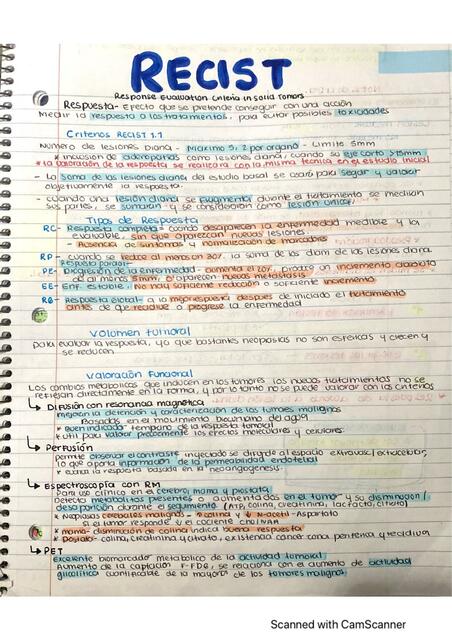 RECIST
Response Evaluation Criteria in Solid Tumors
Respuesta - Efecto que se pretende conseguir con una acción
Medir la respuesta a los tratamientos, para evitar posibles toxicidades
Criterios RECIST 1.1
Número de lesiones Diana - Máximo 5, 2 por órgano - Límite 5mm
* inclusión de adenopatías como lesiones diana, cuando su eje corto >15mm
* la valoración de la respuesta se realizará con la misma técnica en el estudio inicial
- La soma de las lesiones diana del estudio basal se usará para seguir y valorar
objetivamente la respuesta.
- cuando una lesión diana se fragmenta durante el tratamiento se medirán
sus partes, se sumarán y se consideran como lesión única
Tipos de Respuesta
RC- Respuesta completa= cuando desaparecen la enfermedad medible y la
evaluable, sin que aparezcan nuevas lesiones
- Ausencia de síntomas y normalización de marcadores
RP - cuando se reduce al menos un 30% la suma de los diam de las lesiones diana
Respuesta parcial=
PE- Progresión de la enfermedad - aumenta el 20%, produce un incremento absoluto
de al menos 5mm, o aparecen nuevas metástasis
EE- Enf estable: No hay suficiente reducción o suficiente incremento
RG- Respuesta global- a la mejor respuesta después de iniciado el tratamiento
antes de que recidive o progrese la enfermedad
Volumen tumoral
para evaluar la respuesta, ya que bastantes neoplasias no son esféricas y crecen y
se reducen
Valoración Funcional
Los cambios metabólicos que inducen en los tumores los nuevos tratamientos no se
reflejan directamente en la forma, y por lo tanto no se puede valorar con las criterios
↳ Difusión con resonancia magnética
mejoran la detención y caracterización de los tumores malignos
Basados en el movimiento browniano del agua
* buen indicador temprano de la respuesta tumoral
* util para valorar precozmente los efectos moleculares y celulares
↳ Perfusión
permite observar el contraste inyectado se difunde al espacio extravas/extracelular,
lo que aporta información de la permeabilidad endotelial
* evalúa la respuesta basada en la neoangiogénesis
↳ Espectroscopía con RM
Para uso clínico en el cerebro, mama y próstata,
Detecta metabolitos presentes o aumentados en el tumor y su disminución/
desaparición durante el seguimiento (ATP, colina, creatinina, lactato, citrato)
* Neoplasias cerebrales malignas - ↑ colina y ↓ N-acetil-Aspartato
si el tumor responde ↓ el cociente cho/NAA
* mama- disminución de colina indica buena respuesta
* Próstata- colina, creatinina y citrato, existencia cáncer zona periférica y recidiva
↳ PET
Excelente biomarcador metabólico de la actividad tumoral
Aumento de la captación F-FDG, se relaciona con el aumento de actividad
glicolítica cuantificable de la mayoría de los tumores malignos
Scanned with CamScanner